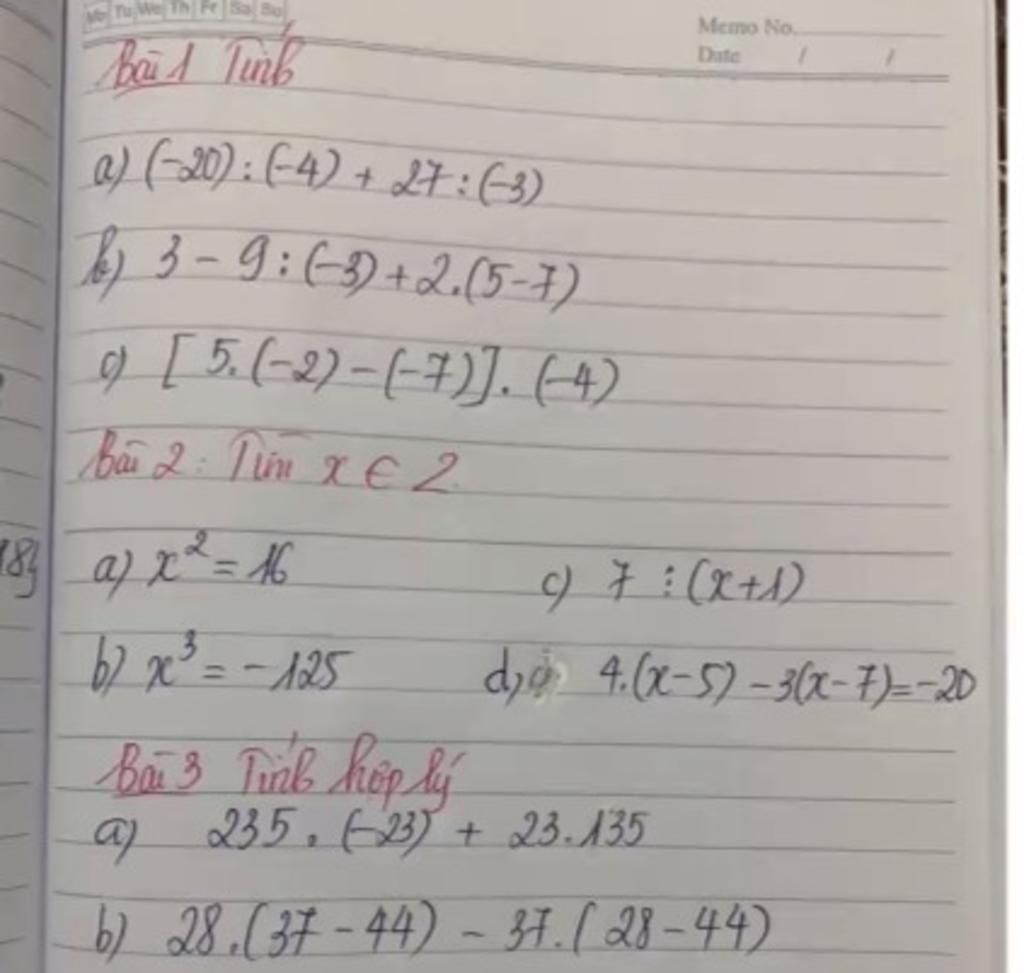 Mo Tu We Th Fr Sa Su
Memo No.
Date / /
Bài 1 Tính
a) (-20) : (-4) + 27 : (-3)
b) 3 - 9 : (-3) + 2.(5-7)
c) [5.(-2) - (-7)]. (-4)
Bài 2: Tìm x ∈ Z
a) x² = 16
c) 7 ⋮ (x+1)
b) x³ = -125
d, 4.(x-5) - 3(x-7) = -20
Bài 3 Tính hợp lý
a) 235. (-23) + 23.135
b) 28.(37 - 44) - 37.(28 - 44)